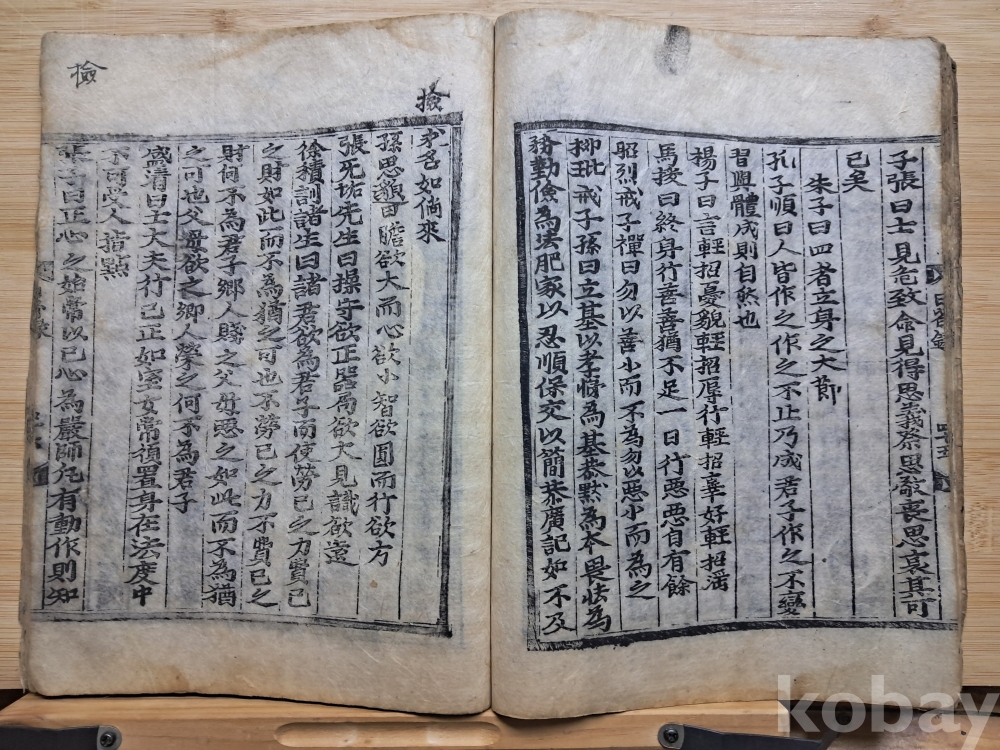 子張曰士見危致命見得思義祭思敬喪思哀其可
已矣
朱子曰四者立身之大節
孔子順曰人皆作之作之不止乃成君子作之不變
習與體成則自然也
楊子曰言輕招憂貌輕招辱行輕招辜好輕招淫
馬援曰終身行善善猶不足一日行惡惡自有餘
昭烈戒子禪曰勿以善小而不為勿以惡小而為之
柳玭戒子孫曰立基以孝悌為基恭默為本畏怯為
務勤儉為法肥家以忍順保交以簡恭廣記如不及
求名如倘來
孫思邈曰膽欲大而心欲小智欲圓而行欲方
張無垢先生曰操守欲正器局欲大見識欲遠
徐積訓諸生曰諸君欲為君子而使勞己之力費己
之財如此而不為猶之可也不勞己之力不費己之
財何不為君子鄉人賤之父母惡之如此而不為猶
之可也父母欲之鄉人榮之何不為君子
盛清曰士大夫行己正如室女常須置身在法度中
不可受人指點
張子曰正心之始常以己心為嚴師凡有動作則知
檢
檢
kobay